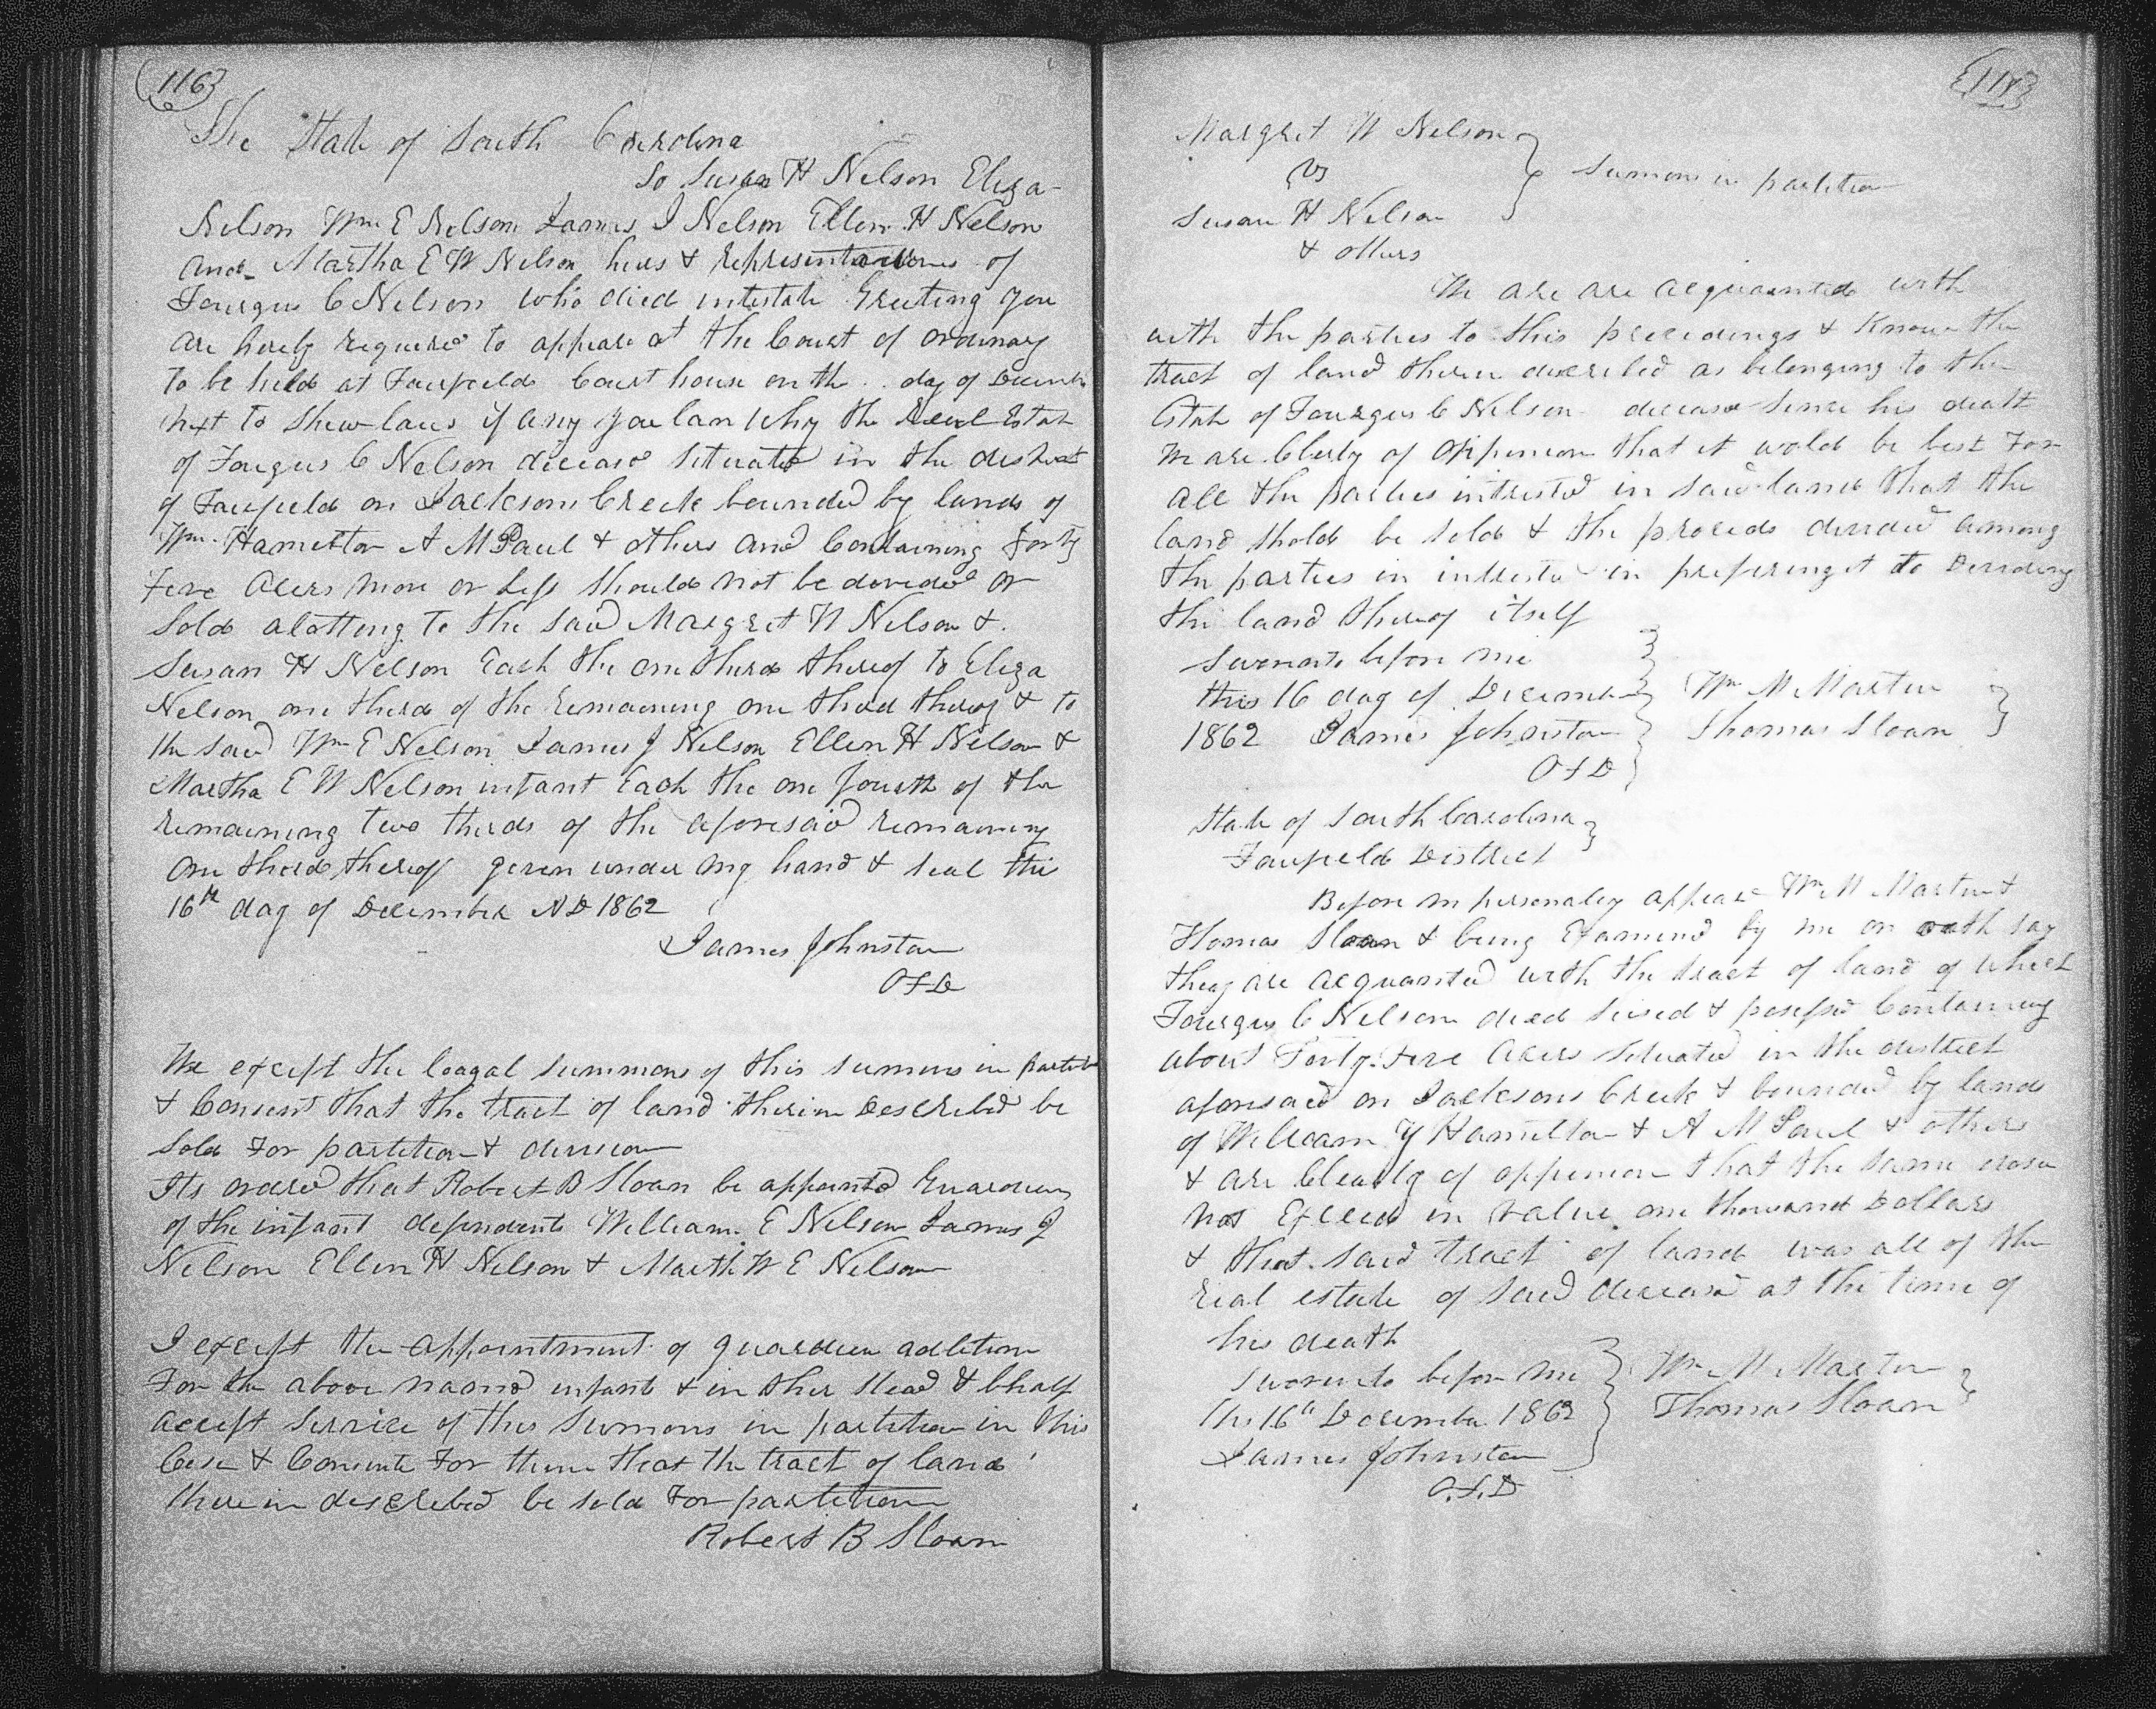 116
The State of South Carolina
To Susan H Nelson Eliza
Nelson Wm E Nelson James J Nelson Ellen H Nelson
and Martha E W Nelson heirs & representatives of
Fourgus C Nelson who died intestate Greeting you
are herby requered to appeare at the Court of ordinary
to be held at Fairfield Court house on th .. day of Decembr
next to shew caus if any you can why the Real Estate
of Fourgus C Nelson deceasd situated in the district
of Fairfield on Jacksons Creek bounded by lands of
Wm Hamelton A M Paul & others and Containing forty
five acers more or less should not be devided or
Sold alotting to the said Margret N Nelson &
Susan H Nelson Each the one third therof to Eliza
Nelson one third of the remaining one third therof & to
the said Wm E Nelson James J Nelson Ellen H Nelson &
Martha E W Nelson infant Each the one fourth of the
remaining two therds of the aforesaid remaining
one third thereof geven under my hand & seal this
16th day of December AD 1862
James Johnston
OFD
We except the leagal summons of this sumons in partition
& Consent that the tract of land therein described be
Sold For partition & devision
Its ordred that Robert B Sloan be appointed Guardian
of the infant defendents William E Nelson James J
Nelson Ellen H Nelson & Marth W E Nelson
I except the appointment of guardian adlitem
For the above named infants & in ther stead & bhalf
accept service of this Sumons in partition in this
Case & Consente For them that the tract of land
there in described be sold For partition
Robert B Sloan
Margret N Nelson
vs
Susan H Nelson
& others
Sumons in partition
We are are acquainted with
with the parties to this precedings & Know the
tract of land therin described as belonging to the
Estate of Fourgus C Nelson deceasd Since his death
We are Clerly of Oppinion that it wold be best For
all the parties intrested in said land that the
land shold be sold & the proceds devided among
the parties in intrested in prefering it to Deviding
the land therof itself
Sworn to before me
this 16 day of December
1862 James Johnston
OFD
Wm M Martin
Thomas Sloan
State of South Carolina
Fairfield District
Before me personaley appeard Wm M Martin &
Thomas Sloan & being Examined by me on oath say
they are acquanted with the tract of land of which
Fourgus C Nelson died seised & possessd Containing
about Forty Five acers setuated in the district
aforesaid on Jacksons Creek & bounded by lands
of William Y Hamilton & A M Paul & others
& are Clearly of oppinion that the same dose
not Exceed in value one thousand Dollars
& that said tract of land was all of the
real estate of said deceasd at the time of
his death
Sworn to before me
this 16th December 1862
James Johnston
O.F.D
Wm M Martin
Thomas Sloan